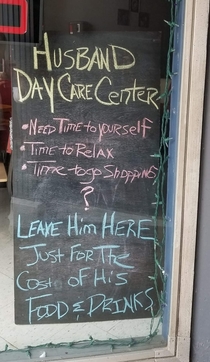 HUSBAND
DAY CARE CENTER
• NEED TIME to yourself
• TIME to RELAX
• TIME to go SHOPPING
?
LEAVE Him HERE
Just FOR THE
Cost OF His
FOOD & DRINKS